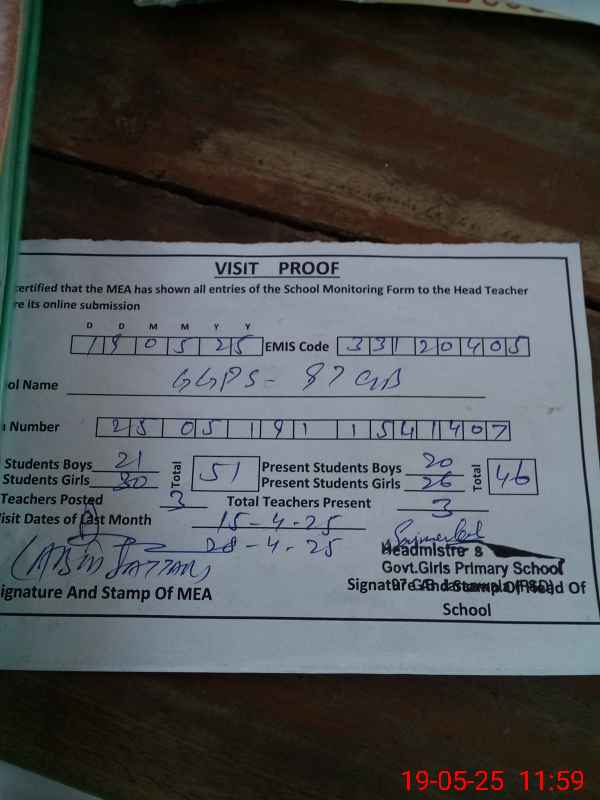 VISIT PROOF
certified that the MEA has shown all entries of the School Monitoring Form to the Head Teacher
re its online submission
D D M M Y Y
19 05 25 EMIS Code 33120405
ol Name GGPS - 97 GB
Number 25 05 19 1 1541407
Students Boys 21 Total 51 Present Students Boys 20 Total 46
Students Girls 30 Present Students Girls 26
Teachers Posted 3 Total Teachers Present 3
isit Dates of Last Month 15-4-25
28-4-25
(ABDU SATTAR)
Headmistre s
Govt.Girls Primary School
ignature And Stamp Of MEA Signature And Stamp Of Head Of
School
19-05-25 11:59